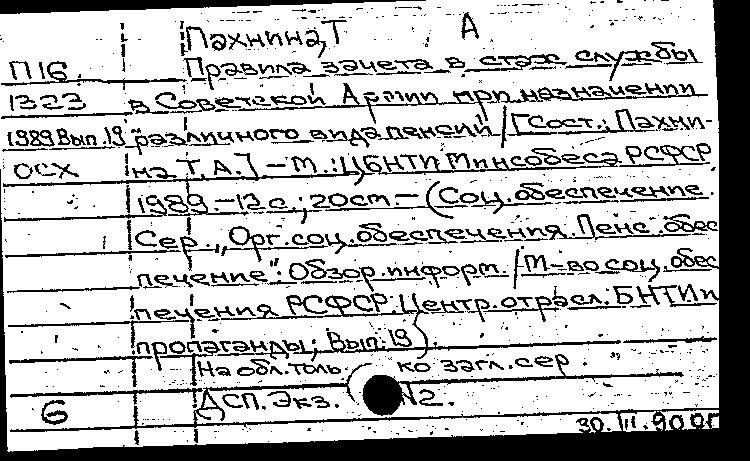 Пахнина, Т А
П16. Правила зачета в стаж службы
1323 в Советской Армии при назначении
1989 Вып.19 различного вида пенсий / [Сост.: Пахни-
ОСХ на Т.А.] – М.: ЦБНТИ Минсобеса РСФСР
1989. – 13 с.; 20 см. – (Соц. обеспечение.
Сер. „Орг. соц. обеспечения. Пенс. обес
печение": Обзор. информ. / М-во соц. обес
печения РСФСР. Центр. отрасл. БНТИ и
пропаганды; Вып. 19).
На обл. толь ко загл. сер.
6 ДСП. Экз. №2.